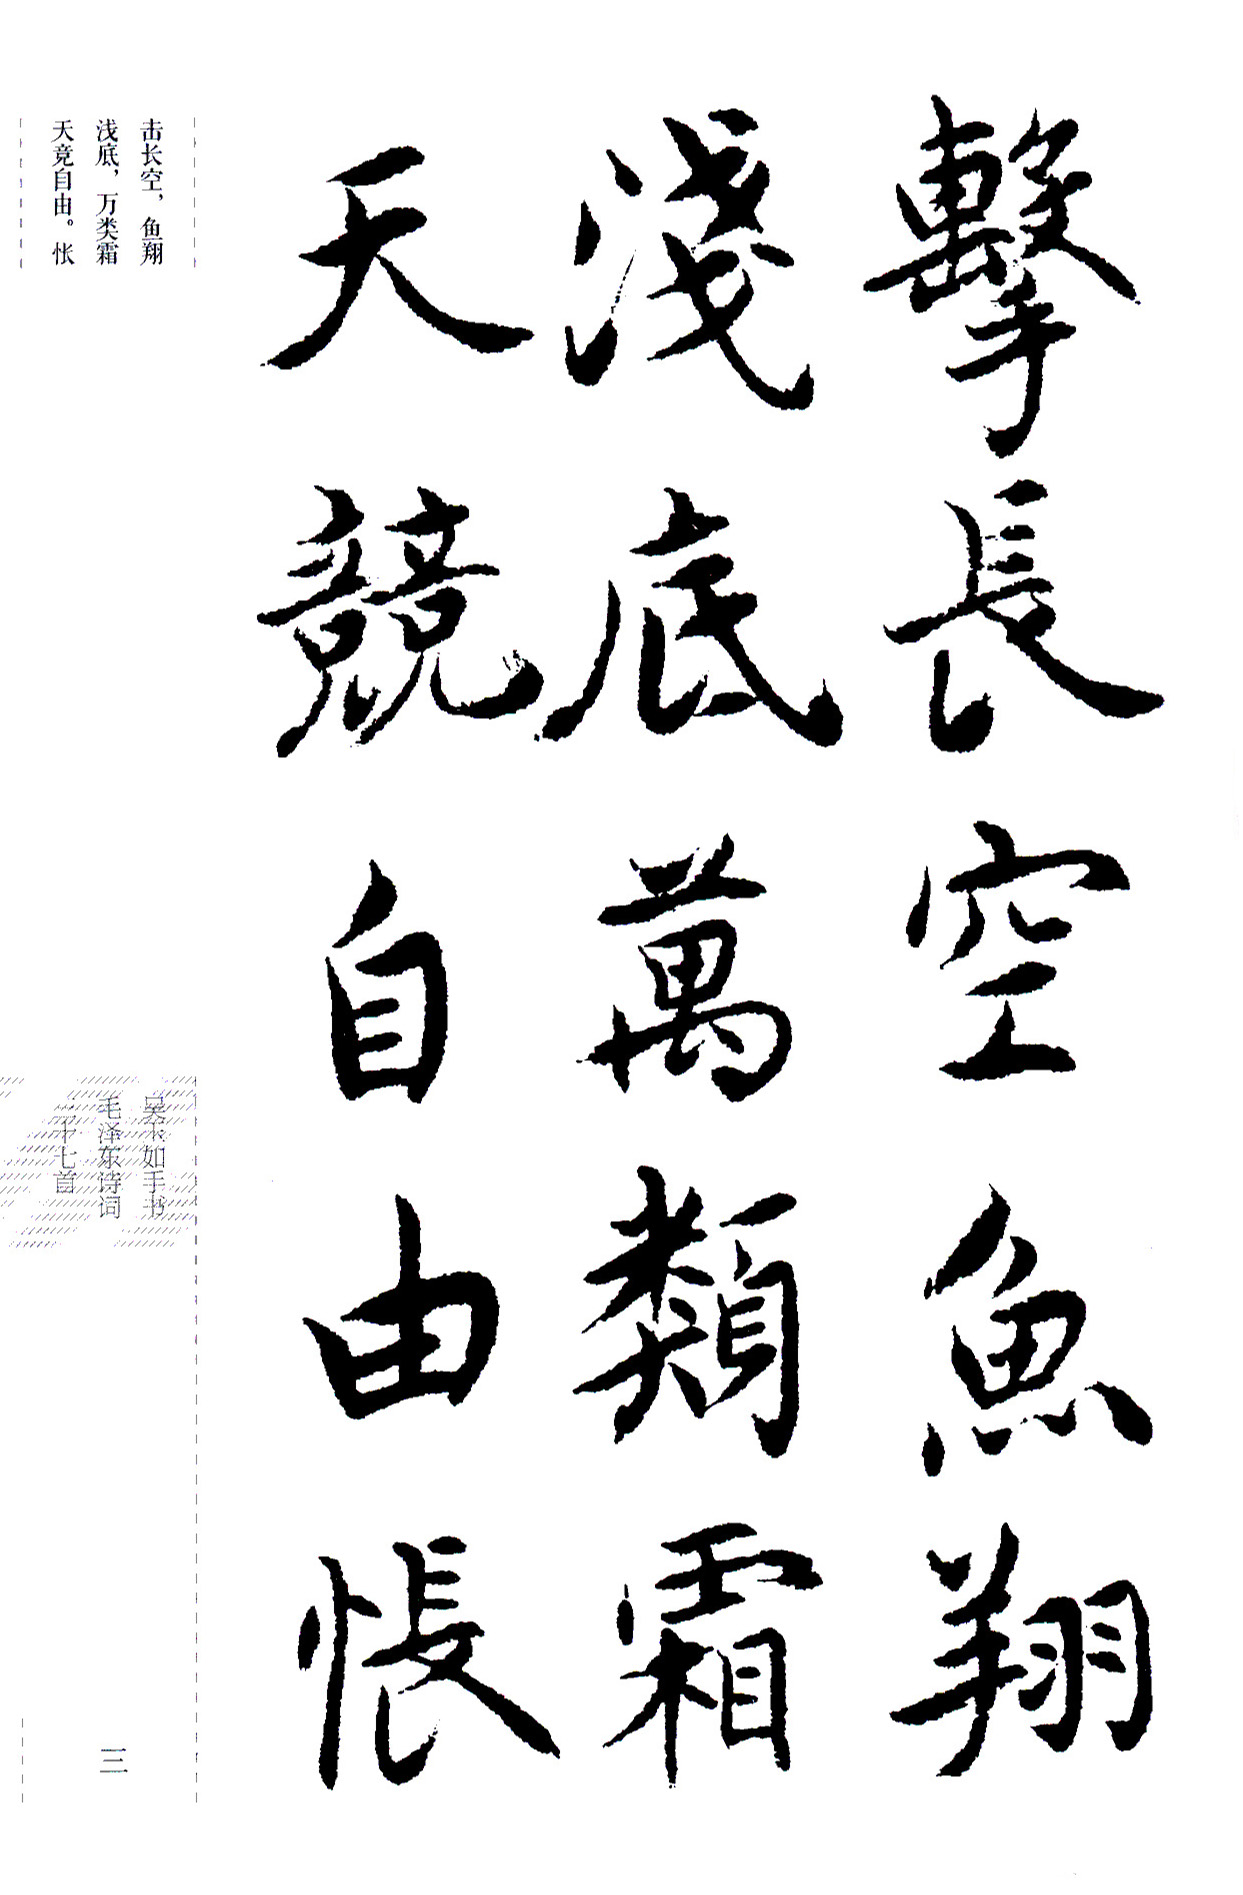 擊長空魚翔
淺底萬類霜
天競自由悵
击长空，鱼翔
浅底，万类霜
天竞自由。怅
吴玉如手书
毛泽东诗词
三十七首
三